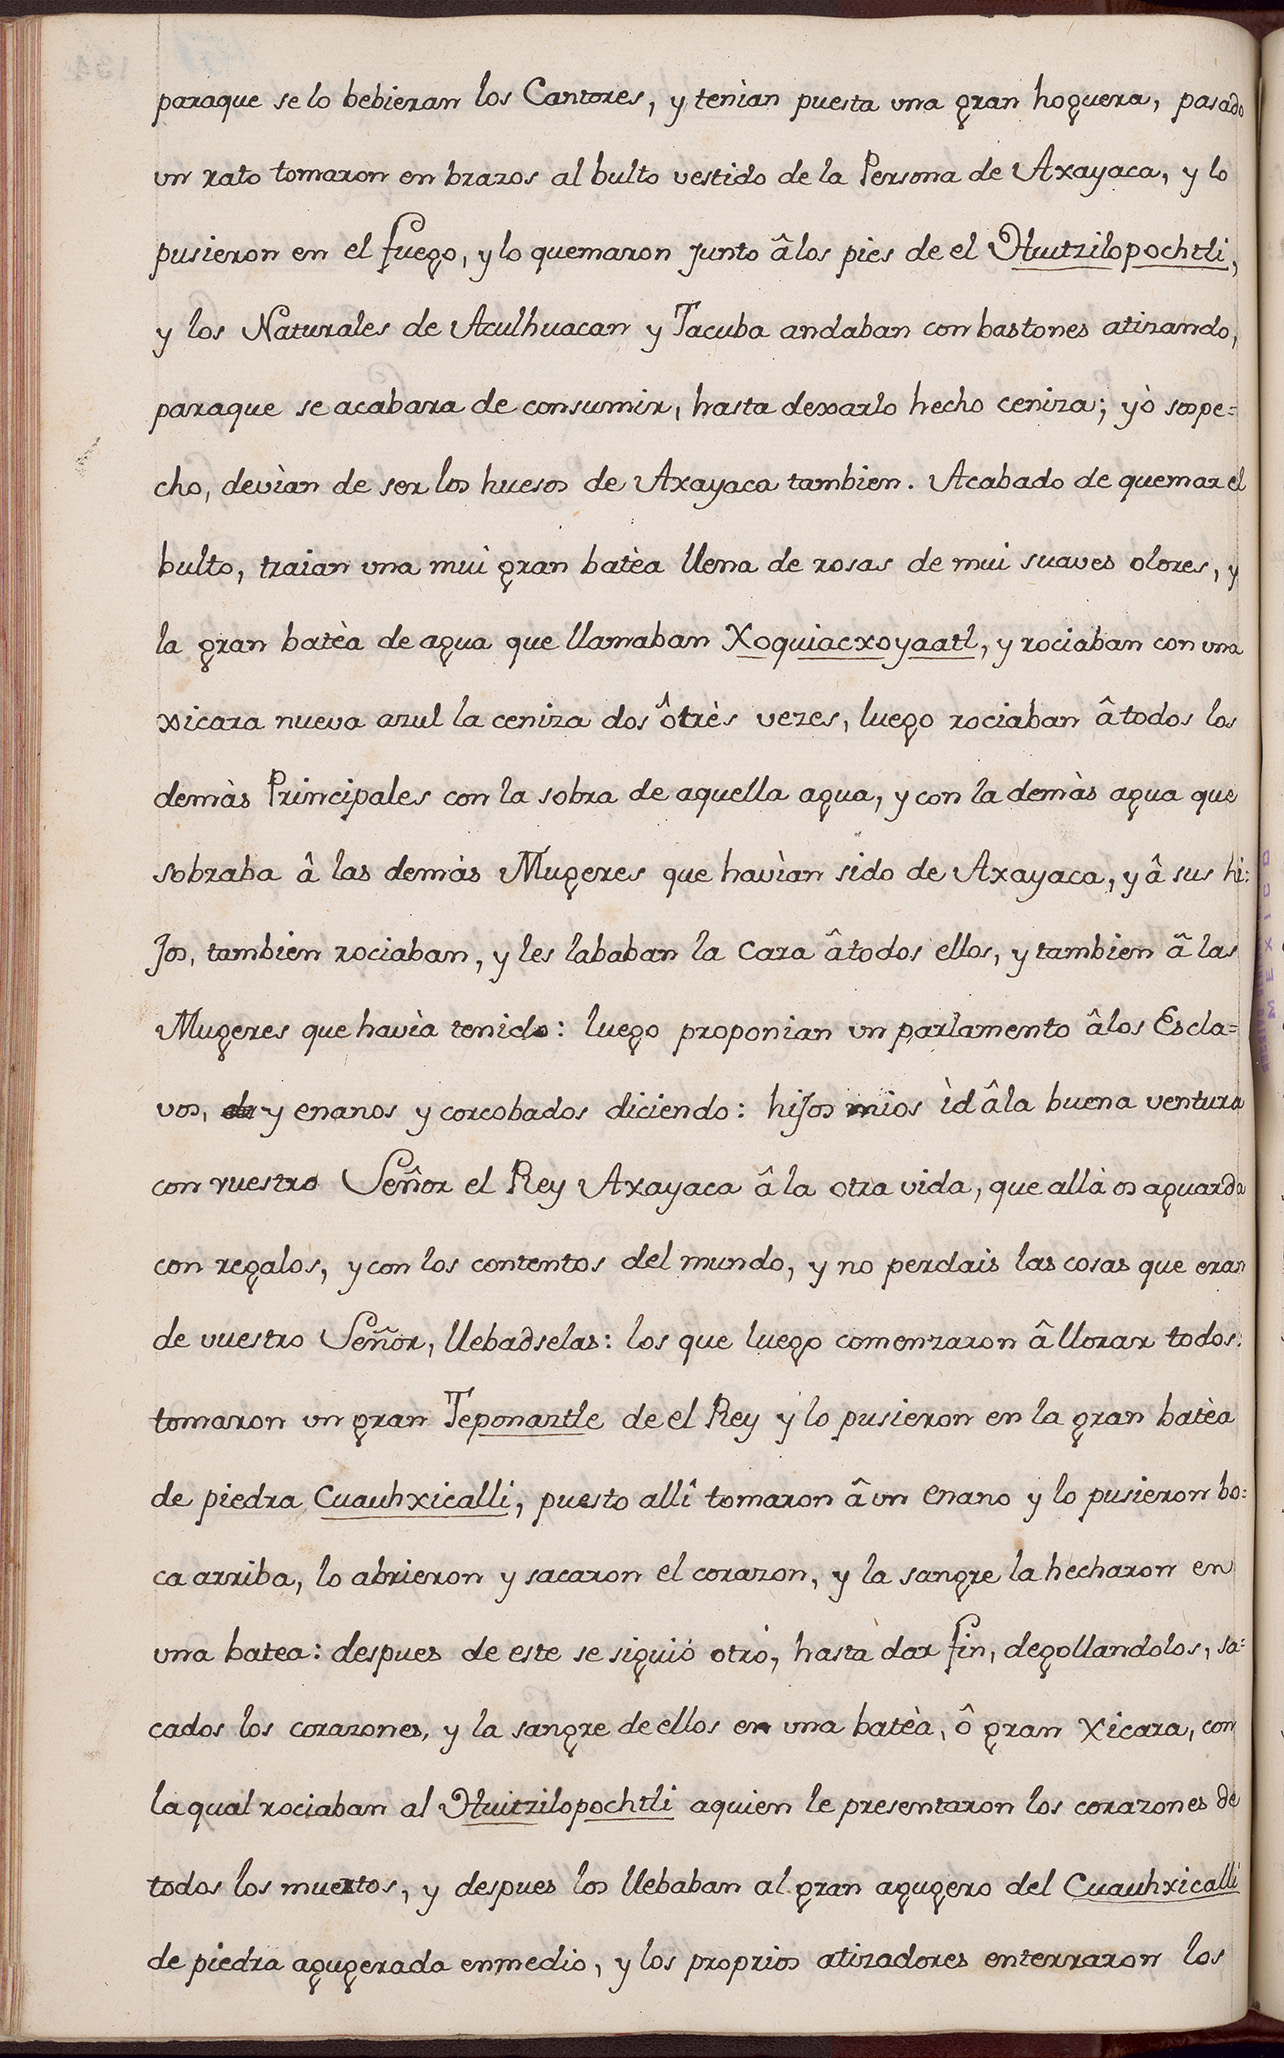 paraque se lo bebieran los Cantores, y tenìan puesta una gran hoguera, pasado
un rato tomaron en brazos al bulto vestido de la Persona de Axayaca, y lo
pusieron en el fuego, y lo quemaron junto âlos pies de el Huitzilopochtli,
y los Naturales de Aculhuacan y Tacuba andaban con bastones atizando,
paraque se acabara de consumir, hasta dexarlo hecho ceniza; yò sospe=
cho, devìan de ser los huesos de Axayaca tambien. Acabado de quemar el
bulto, traian una mui gran batèa llena de rosas de mui suaves olores, y
la gran batèa de agua que llamaban Xoquiacxoyaatl, y rociaban con una
xicara nueva azul la ceniza dos ôtrès vezes, luego rociaban âtodos los
demàs Principales con la sobra de aquella agua, y con la demàs agua que
sobraba â las demàs Mugeres que havìan sido de Axayaca, y â sus hi=
jos, tambien rociaban, y les lababan la cara âtodos ellos, y tambien â las
Mugeres que havìa tenido: luego proponian un parlamento âlos Escla=
vos, y enanos y corcobados diciendo: hijos mios ìd âla buena ventura
con vuestro Señor el Rey Axayaca â la otra vida, que allà os aguarda
con regalos, y con los contentos del mundo, y no perdais las cosas que eran
de vuestro Señor, llebadselas: los que luego comenzaron â llorar todos:
tomaron un gran Teponaztle de el Rey y lo pusieron en la gran batèa
de piedra Cuauhxicalli, puesto allî tomaron âun enano y lo pusieron bo=
ca arriba, lo abrieron y sacaron el corazon, y la sangre la hecharon en
una batea: despues de este se siguió otró, hasta dar fin, degollandolos, sa=
cados los corazones, y la sangre de ellos en una batèa, ô gran Xicara, con
la qual rociaban al Huitzilopochtli aquien le presentaron los corazones de
todos los muertos, y despues los llebaban al gran agugero del Cuauhxicalli
de piedra agugerada enmedio, y los proprios atizadores enterraron los